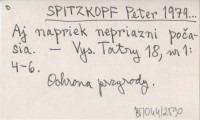 SPITZKOPF Peter 1979...
Aj napriek nepriazni poča-
sia. – Vys. Tatry 18, nr 1:
4-6.
Ochrona przyrody.